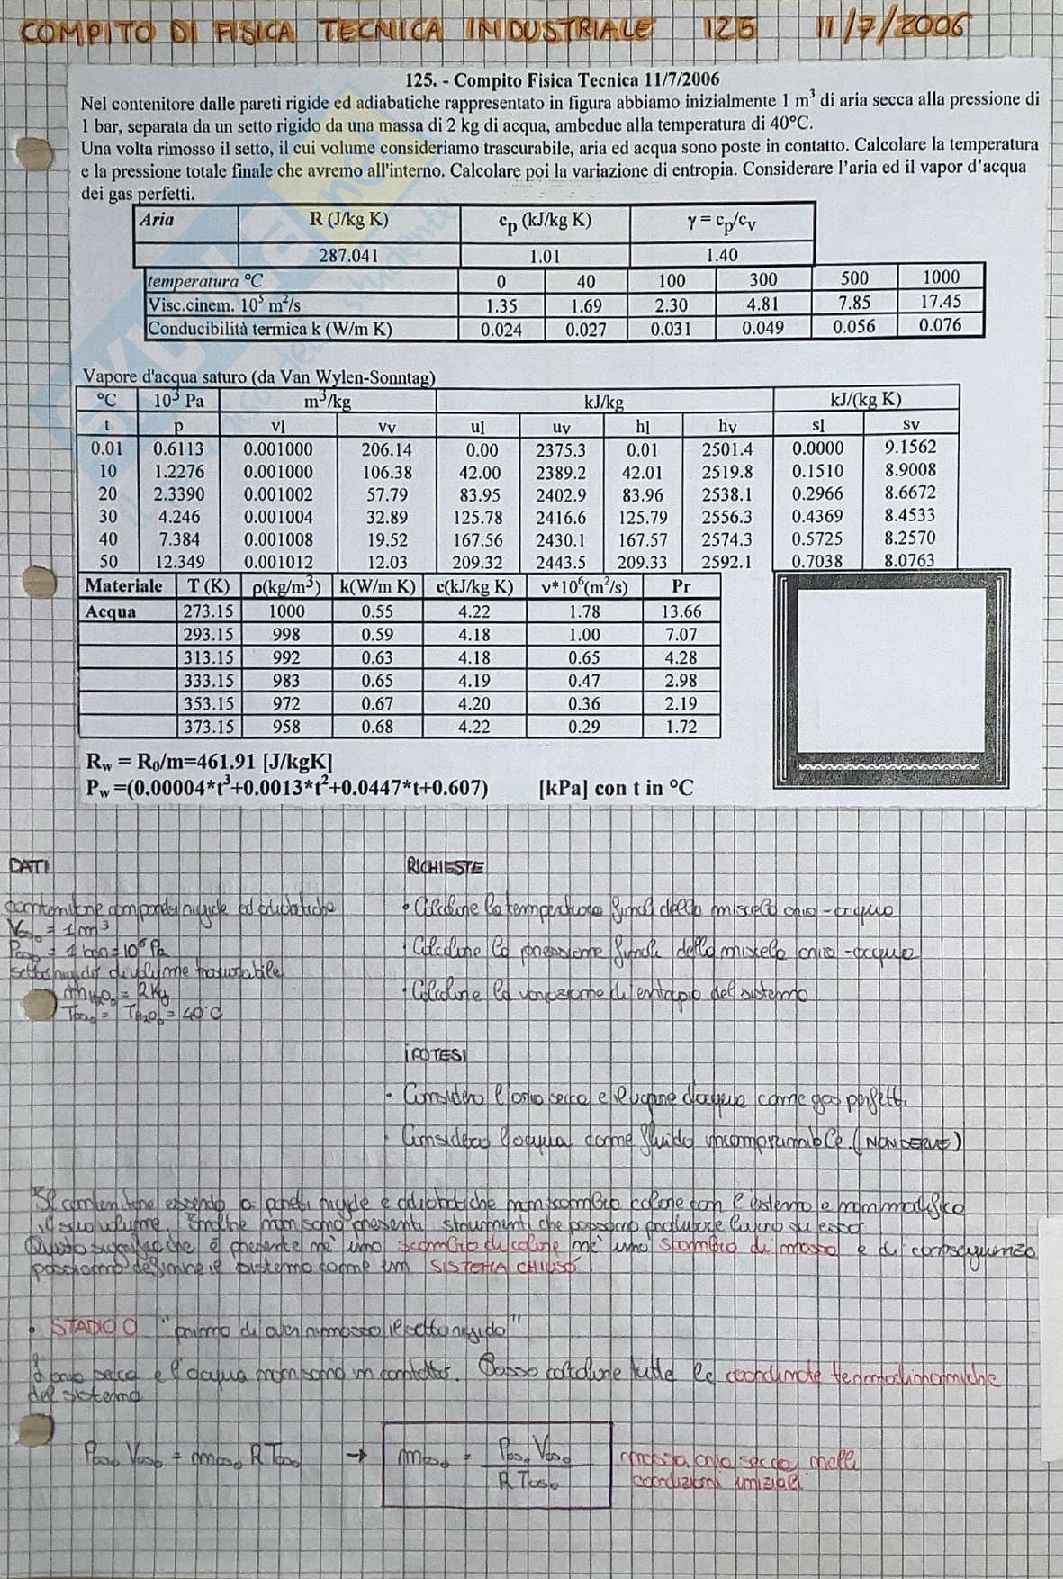 COMPITO DI FISICA TECNICA INDUSTRIALE 125 11/7/2006
125. - Compito Fisica Tecnica 11/7/2006
Nel contenitore dalle pareti rigide ed adiabatiche rappresentato in figura abbiamo inizialmente 1 m³ di aria secca alla pressione di
1 bar, separata da un setto rigido da una massa di 2 kg di acqua, ambedue alla temperatura di 40°C.
Una volta rimosso il setto, il cui volume consideriamo trascurabile, aria ed acqua sono poste in contatto. Calcolare la temperatura
e la pressione totale finale che avremo all'interno. Calcolare poi la variazione di entropia. Considerare l'aria ed il vapor d'acqua
dei gas perfetti.
Aria R (J/kg K) cp (kJ/kg K) γ = cp/cv
287.041 1.01 1.40
temperatura °C 0 40 100 300 500 1000
Visc.cinem. 10⁵ m²/s 1.35 1.69 2.30 4.81 7.85 17.45
Conducibilità termica k (W/m K) 0.024 0.027 0.031 0.049 0.056 0.076
Vapore d'acqua saturo (da Van Wylen-Sonntag)
°C 10³ Pa m³/kg kJ/kg kJ/(kg K)
t p vl vv ul uv hl hv sl sv
0.01 0.6113 0.001000 206.14 0.00 2375.3 0.01 2501.4 0.0000 9.1562
10 1.2276 0.001000 106.38 42.00 2389.2 42.01 2519.8 0.1510 8.9008
20 2.3390 0.001002 57.79 83.95 2402.9 83.96 2538.1 0.2966 8.6672
30 4.246 0.001004 32.89 125.78 2416.6 125.79 2556.3 0.4369 8.4533
40 7.384 0.001008 19.52 167.56 2430.1 167.57 2574.3 0.5725 8.2570
50 12.349 0.001012 12.03 209.32 2443.5 209.33 2592.1 0.7038 8.0763
Materiale T (K) ρ(kg/m³) k(W/m K) c(kJ/kg K) ν*10⁶(m²/s) Pr
Acqua 273.15 1000 0.55 4.22 1.78 13.66
293.15 998 0.59 4.18 1.00 7.07
313.15 992 0.63 4.18 0.65 4.28
333.15 983 0.65 4.19 0.47 2.98
353.15 972 0.67 4.20 0.36 2.19
373.15 958 0.68 4.22 0.29 1.72
Rw = R0/m=461.91 [J/kgK]
Pw=(0.00004*t³+0.0013*t²+0.0447*t+0.607) [kPa] con t in °C
DATI
contenitore con pareti rigide ed adiabatiche
Vas0 = 1m³
Pas0 = 1 bar = 10⁵ Pa
setto rigido di volume trascurabile
mH2O0 = 2Kg
Tas0 = TH2O0 = 40°C
RICHIESTE
• Calcolare la temperatura finale della miscela aria-acqua
• Calcolare la pressione finale della miscela aria-acqua
• Calcolare la variazione di entropia del sistema
IPOTESI
• Considero l'aria secca e il vapore d'acqua come gas perfetti.
• Considero l'acqua come fluido incomprimibile. (NON SERVE)
Il contenitore essendo a pareti rigide e adiabatiche non scambia calore con l'esterno e non modifica
il suo volume. Inoltre non sono presenti strumenti che possono produrre lavoro su esso.
Questo significa che è presente né uno scambio di calore né uno scambio di massa e di conseguenza
possiamo definire il sistema come un SISTEMA CHIUSO
• STADIO 0 "prima di aver rimosso il setto rigido"
L'aria secca e l'acqua non sono in contatto. Posso calcolare tutte le coordinate termodinamiche
del sistema
Pas0 Vas0 = mas0 R Tas0 → mas0 = Pas0 Vas0 / R Tas0 massa aria secca nelle
condizioni iniziali